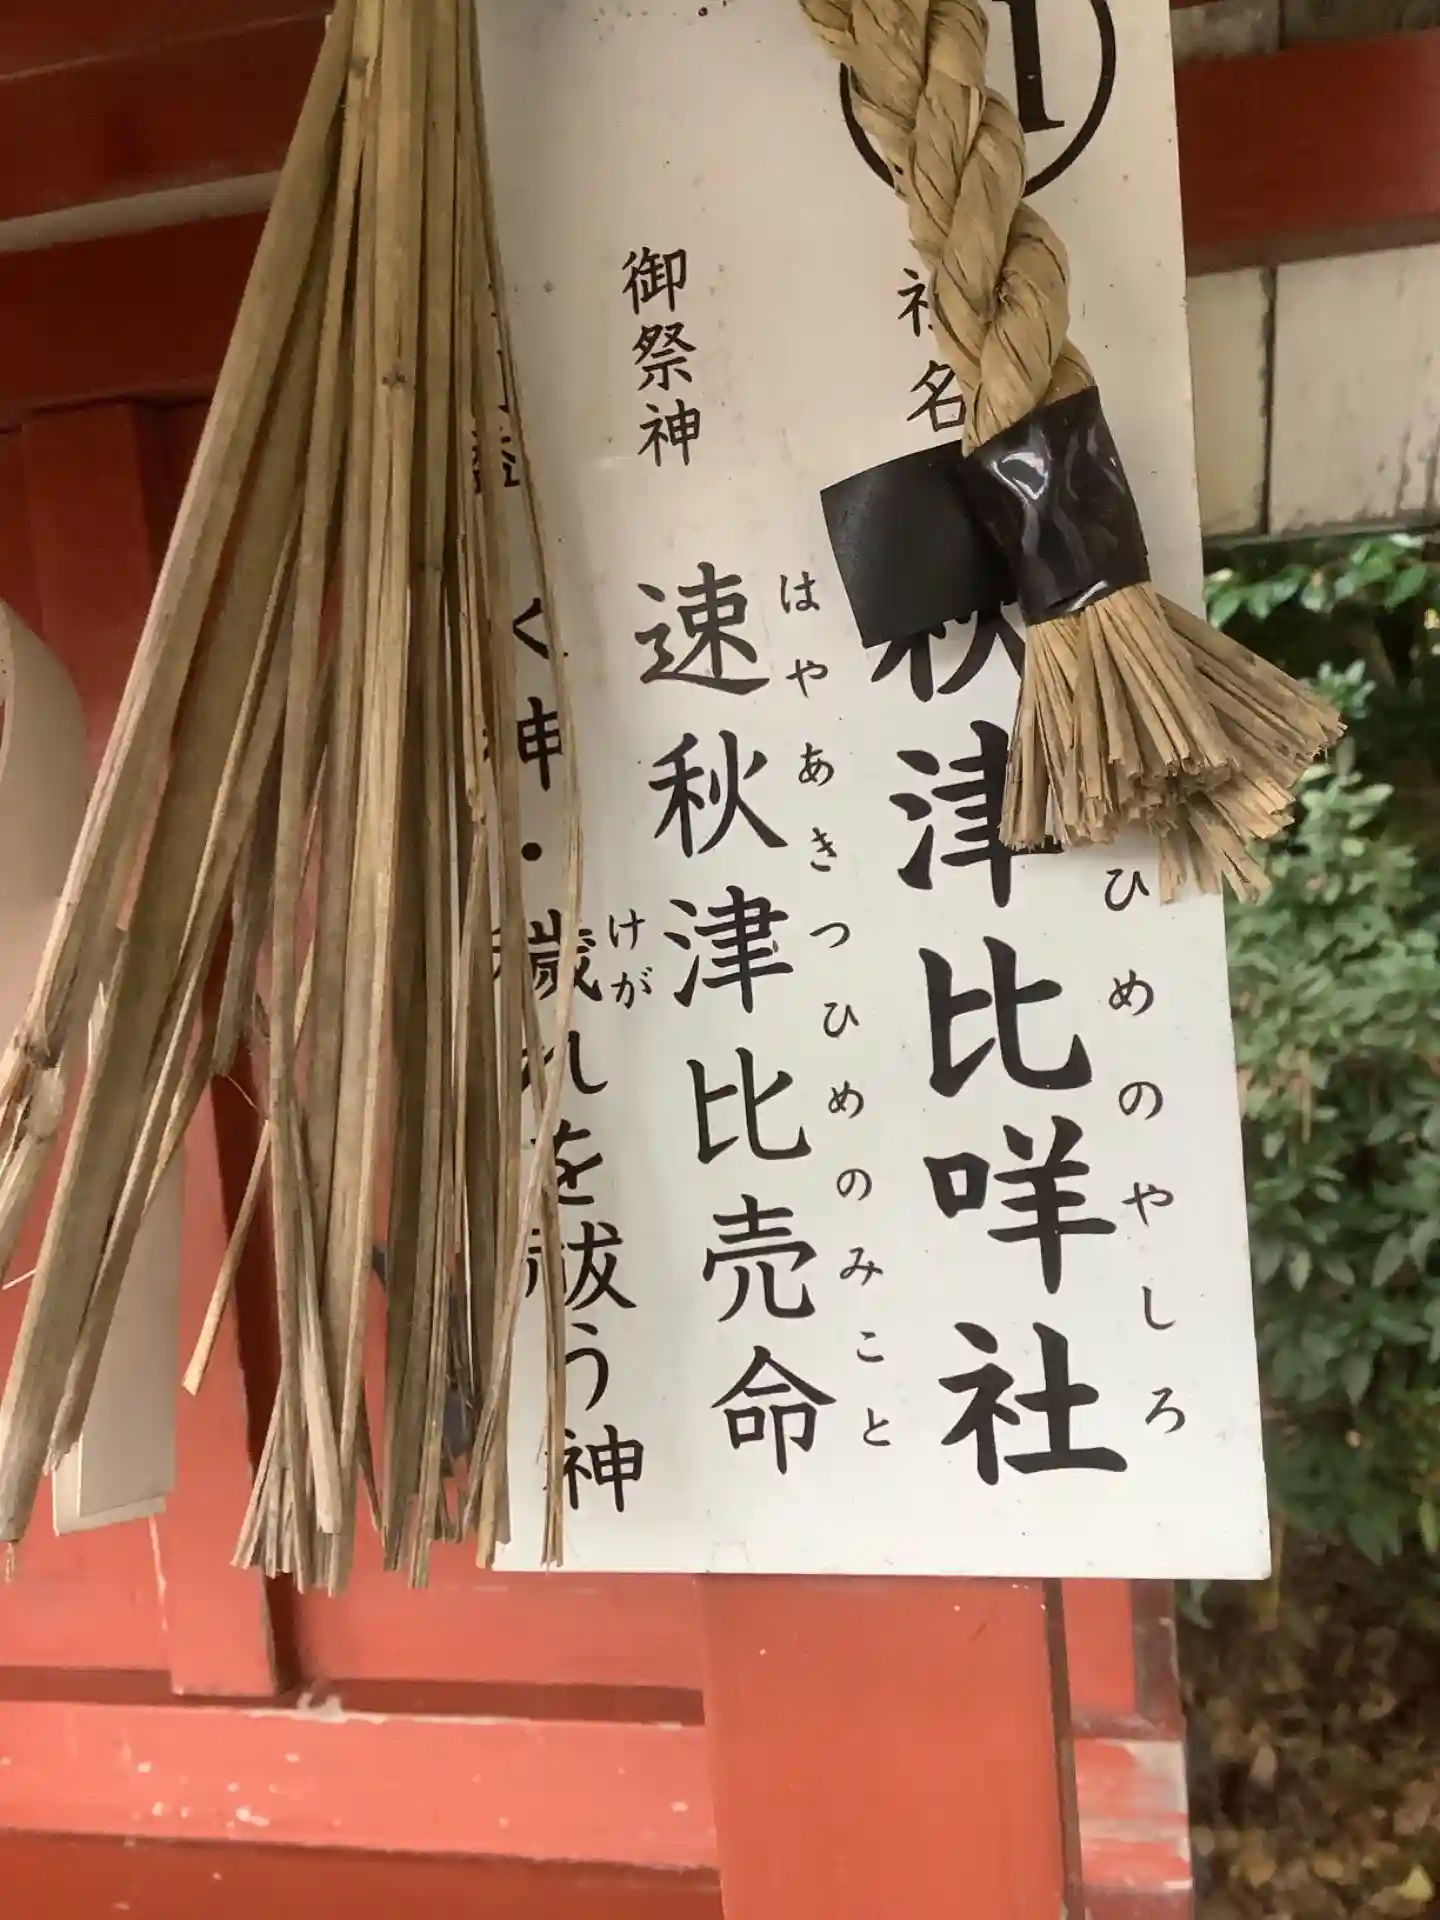 1
名
津比咩社
ひめのやしろ
御祭神
速秋津比売命
はやあきつひめのみこと
く神・穢れを祓う神
けが